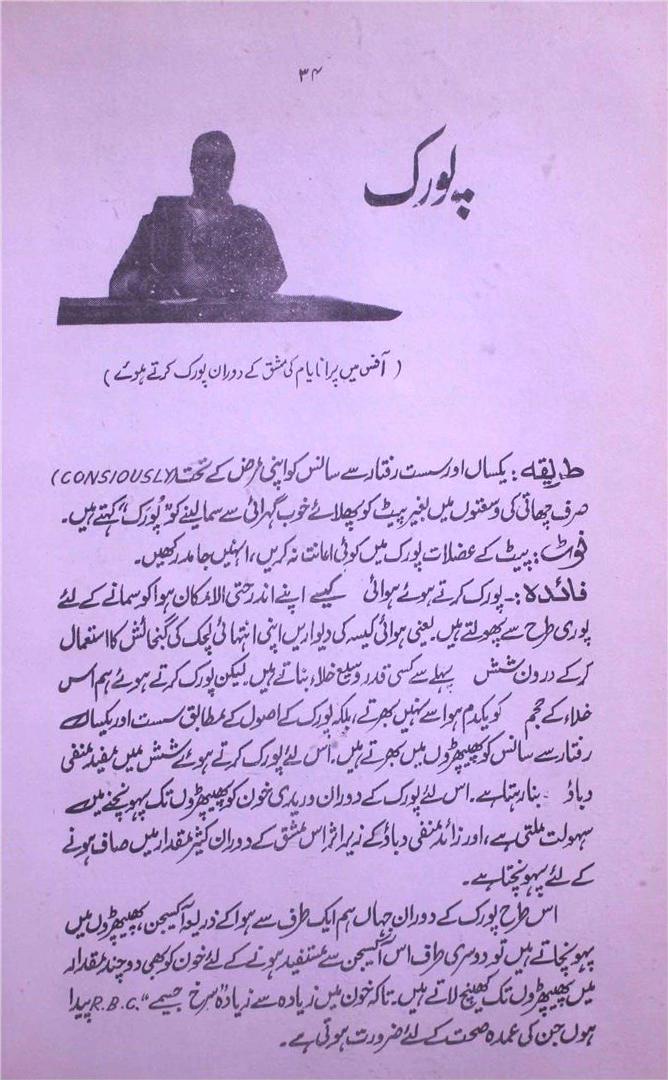 ۳۴
پورک
(آفس میں پرانایام کی مشق کے دوران پورک کرتے ہوئے)
طریقہ: یکساں اور سست رفتار سے سانس کو اپنی غرض کے تحت (CONSIOUSLY)
صرف چھاتی کی وسعتوں میں بغیر پیٹ کو پھلائے خوب گہرائی سے سما لینے کو "پُورک" کہتے ہیں۔
نوٹ: پیٹ کے عضلات پورک میں کوئی اعانت نہ کریں، انہیں جامد رکھیں۔
فائدہ:۔ پورک کرتے ہوئے ہوائی کیسے اپنے اندر حتی الامکان ہوا کو سمانے کے لئے
پوری طرح سے پھولتے ہیں۔ یعنی ہوائی کیسہ کی دیواریں اپنی انتہائی لچک کی گنجائش کا استعمال
کر کے درون شش پہلے سے کسی قدر وسیع خلاء بناتے ہیں۔ لیکن پورک کرتے ہوئے ہم اس
خلاء کے حجم کو یکدم ہوا سے نہیں بھرتے، بلکہ پورک کے اصول کے مطابق سست اور یکساں
رفتار سے سانس کو پھیپھڑوں میں بھرتے ہیں۔ اس لئے پورک کرتے ہوئے شش میں مفید منفی
دباؤ بنا رہتا ہے۔ اس لئے پورک کے دوران وریدی خون کو پھیپھڑوں تک پہونچنے میں
سہولت ملتی ہے، اور زائد منفی دباؤ کے زیر اثر اس مشق کے دوران کثیر مقدار میں صاف ہونے
کے لئے پہونچتا ہے۔
اس طرح پورک کے دوران جہاں ہم ایک طرف سے ہوا کے ذریعہ آکسیجن، پھیپھڑوں میں
پہونچاتے ہیں تو دوسری طرف اس آکسیجن سے مستفید ہونے کے لئے خون کو بھی دو چند مقدار
میں پھیپھڑوں تک کھینچ لاتے ہیں۔ تاکہ خون میں زیادہ سے زیادہ "سرخ جسیمے R.B.C." پیدا
ہوں جن کی عمدہ صحت کے لئے ضرورت ہوتی ہے۔